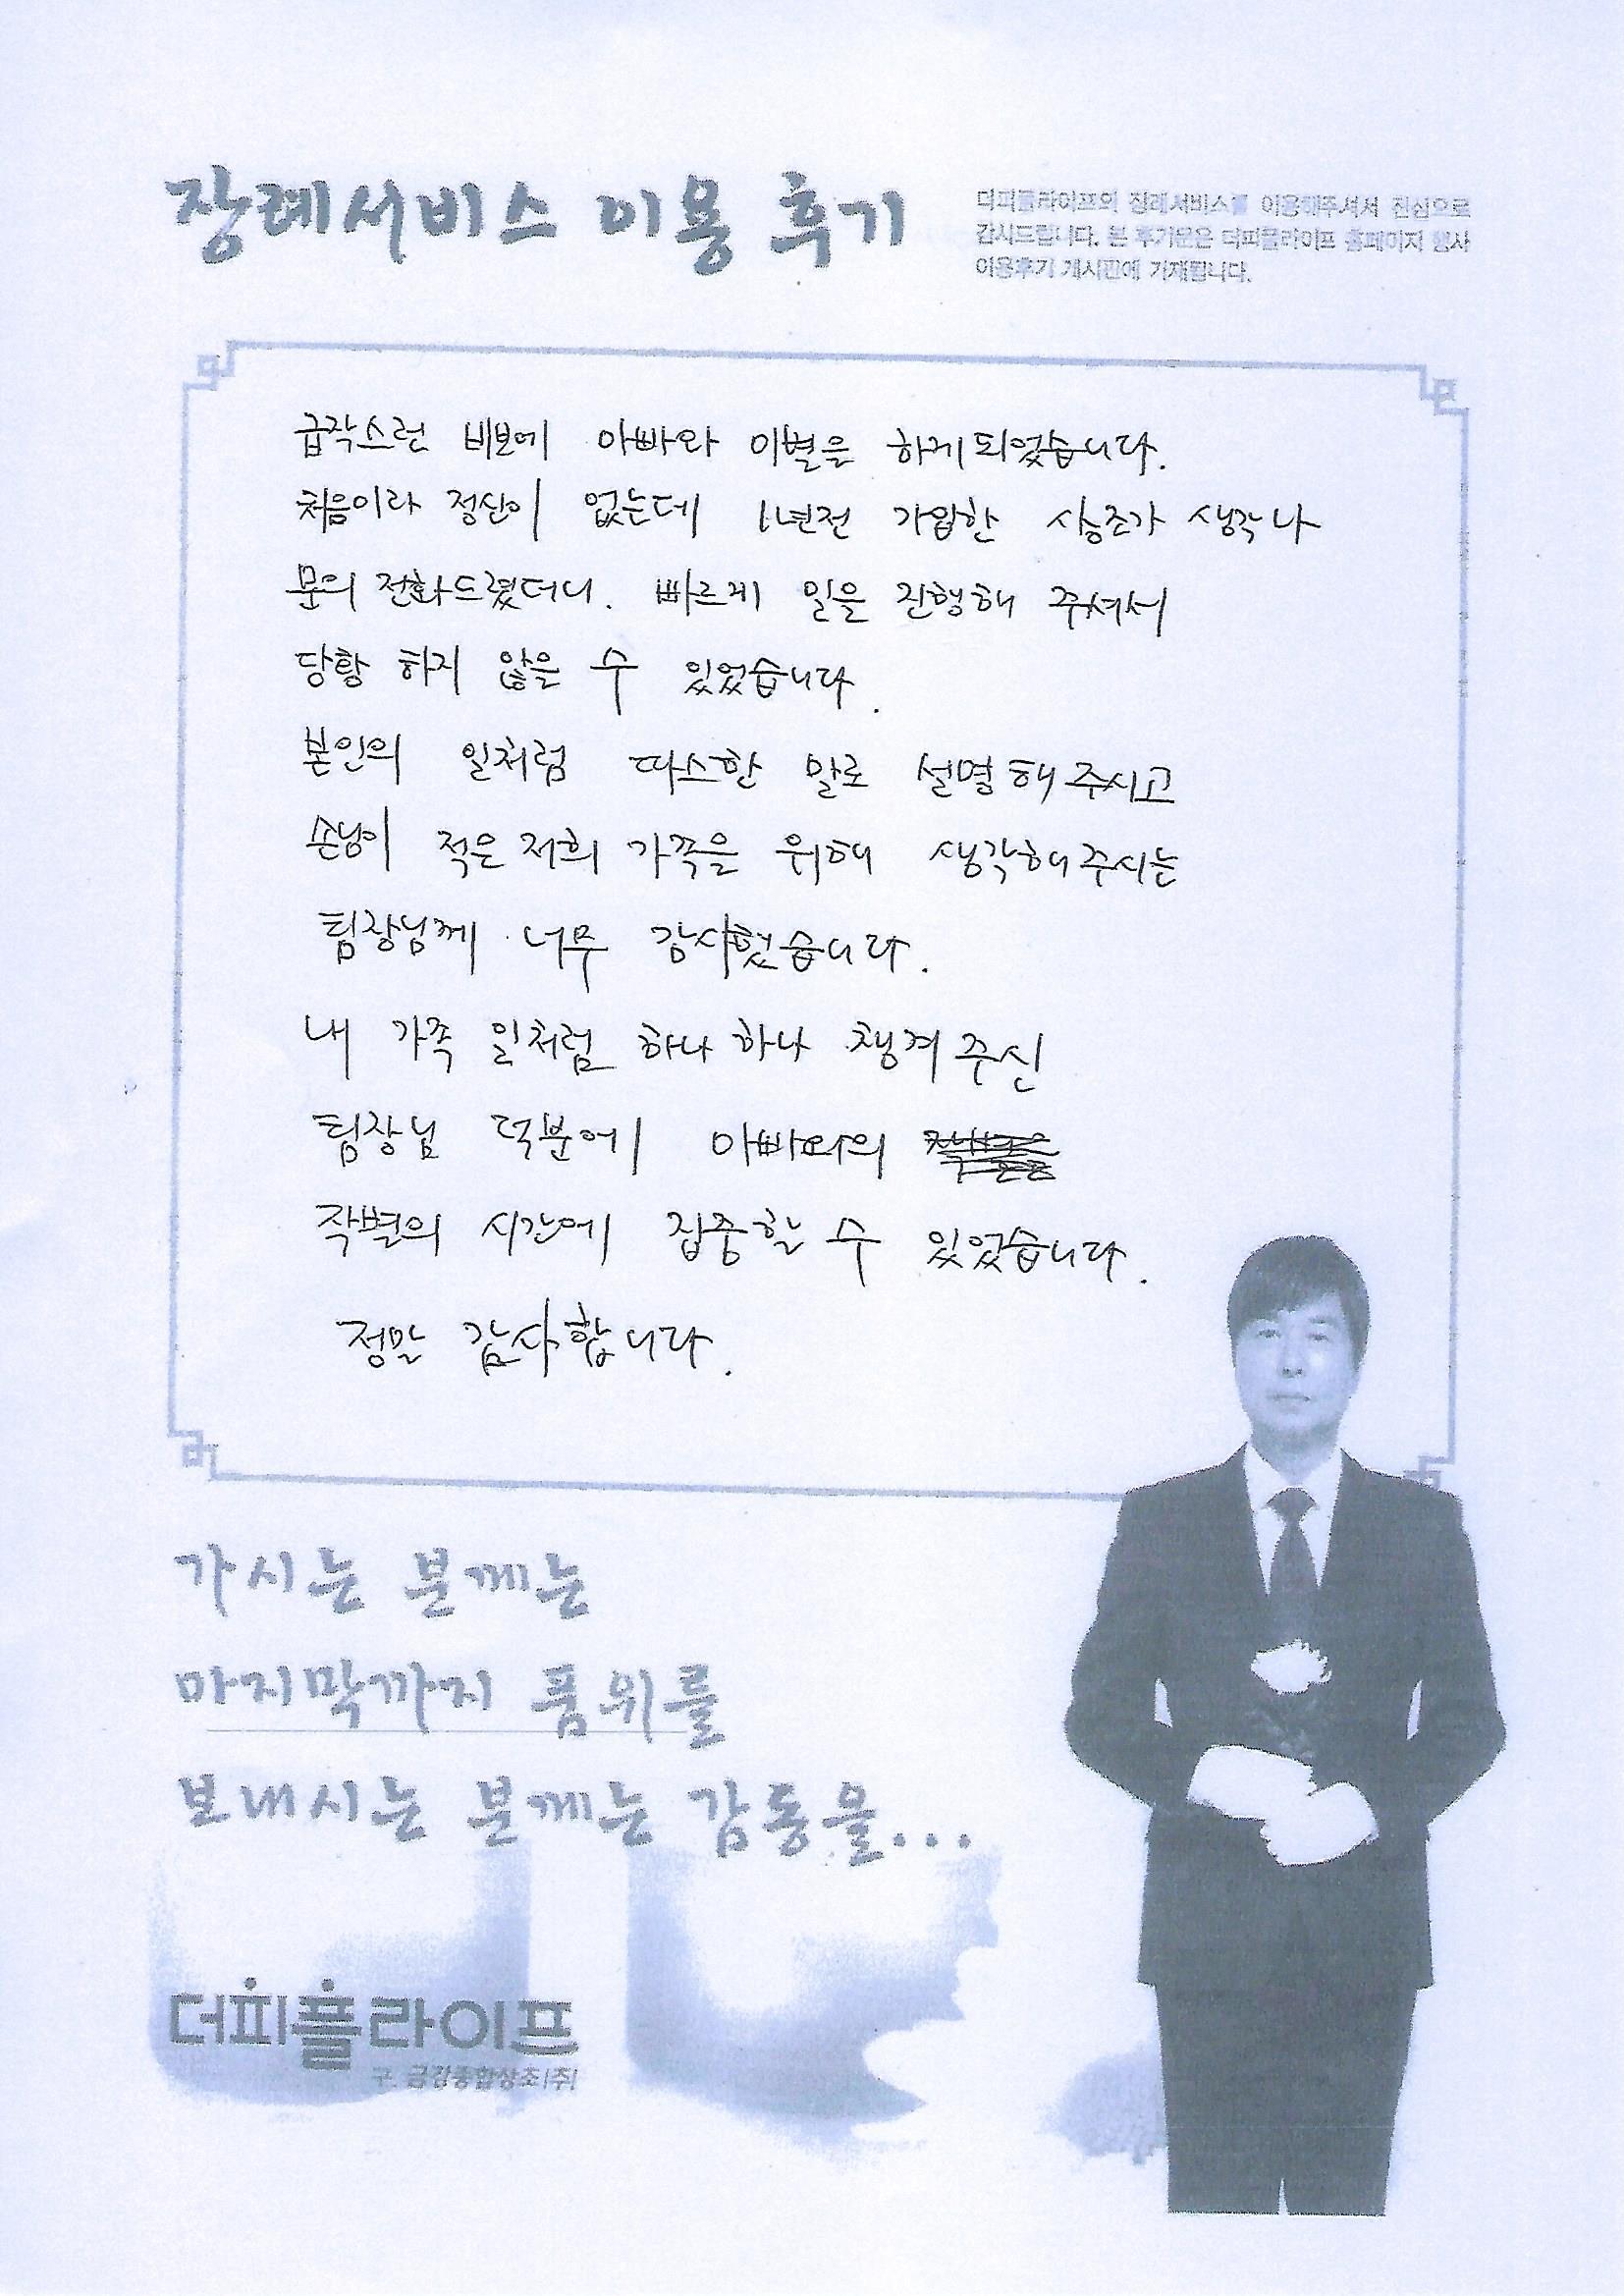 장례서비스 이용 후기
더피플라이프의 장례서비스를 이용해주셔서 진심으로
감사드립니다. 본 후기문은 더피플라이프 홈페이지 행사
이용후기 게시판에 기재됩니다.
급작스런 비보에 아빠와 이별을 하게되었습니다.
처음이라 정신이 없는데 1년전 가입한 상조가 생각나
문의 전화드렸더니. 빠르게 일을 진행해 주셔서
당황 하지 않을 수 있었습니다.
본인의 일처럼 따스한 말로 설명해주시고
손님이 적은 저희 가족을 위해 생각해주시는
팀장님께 너무 감사했습니다.
내 가족 일처럼 하나하나 챙겨주신
팀장님 덕분에 아빠와의
작별의 시간에 집중할 수 있었습니다.
정말 감사합니다.
가시는 분께는
마지막까지 품위를
보내시는 분께는 감동을...
더피플라이프
구. 금강종합상조(주)